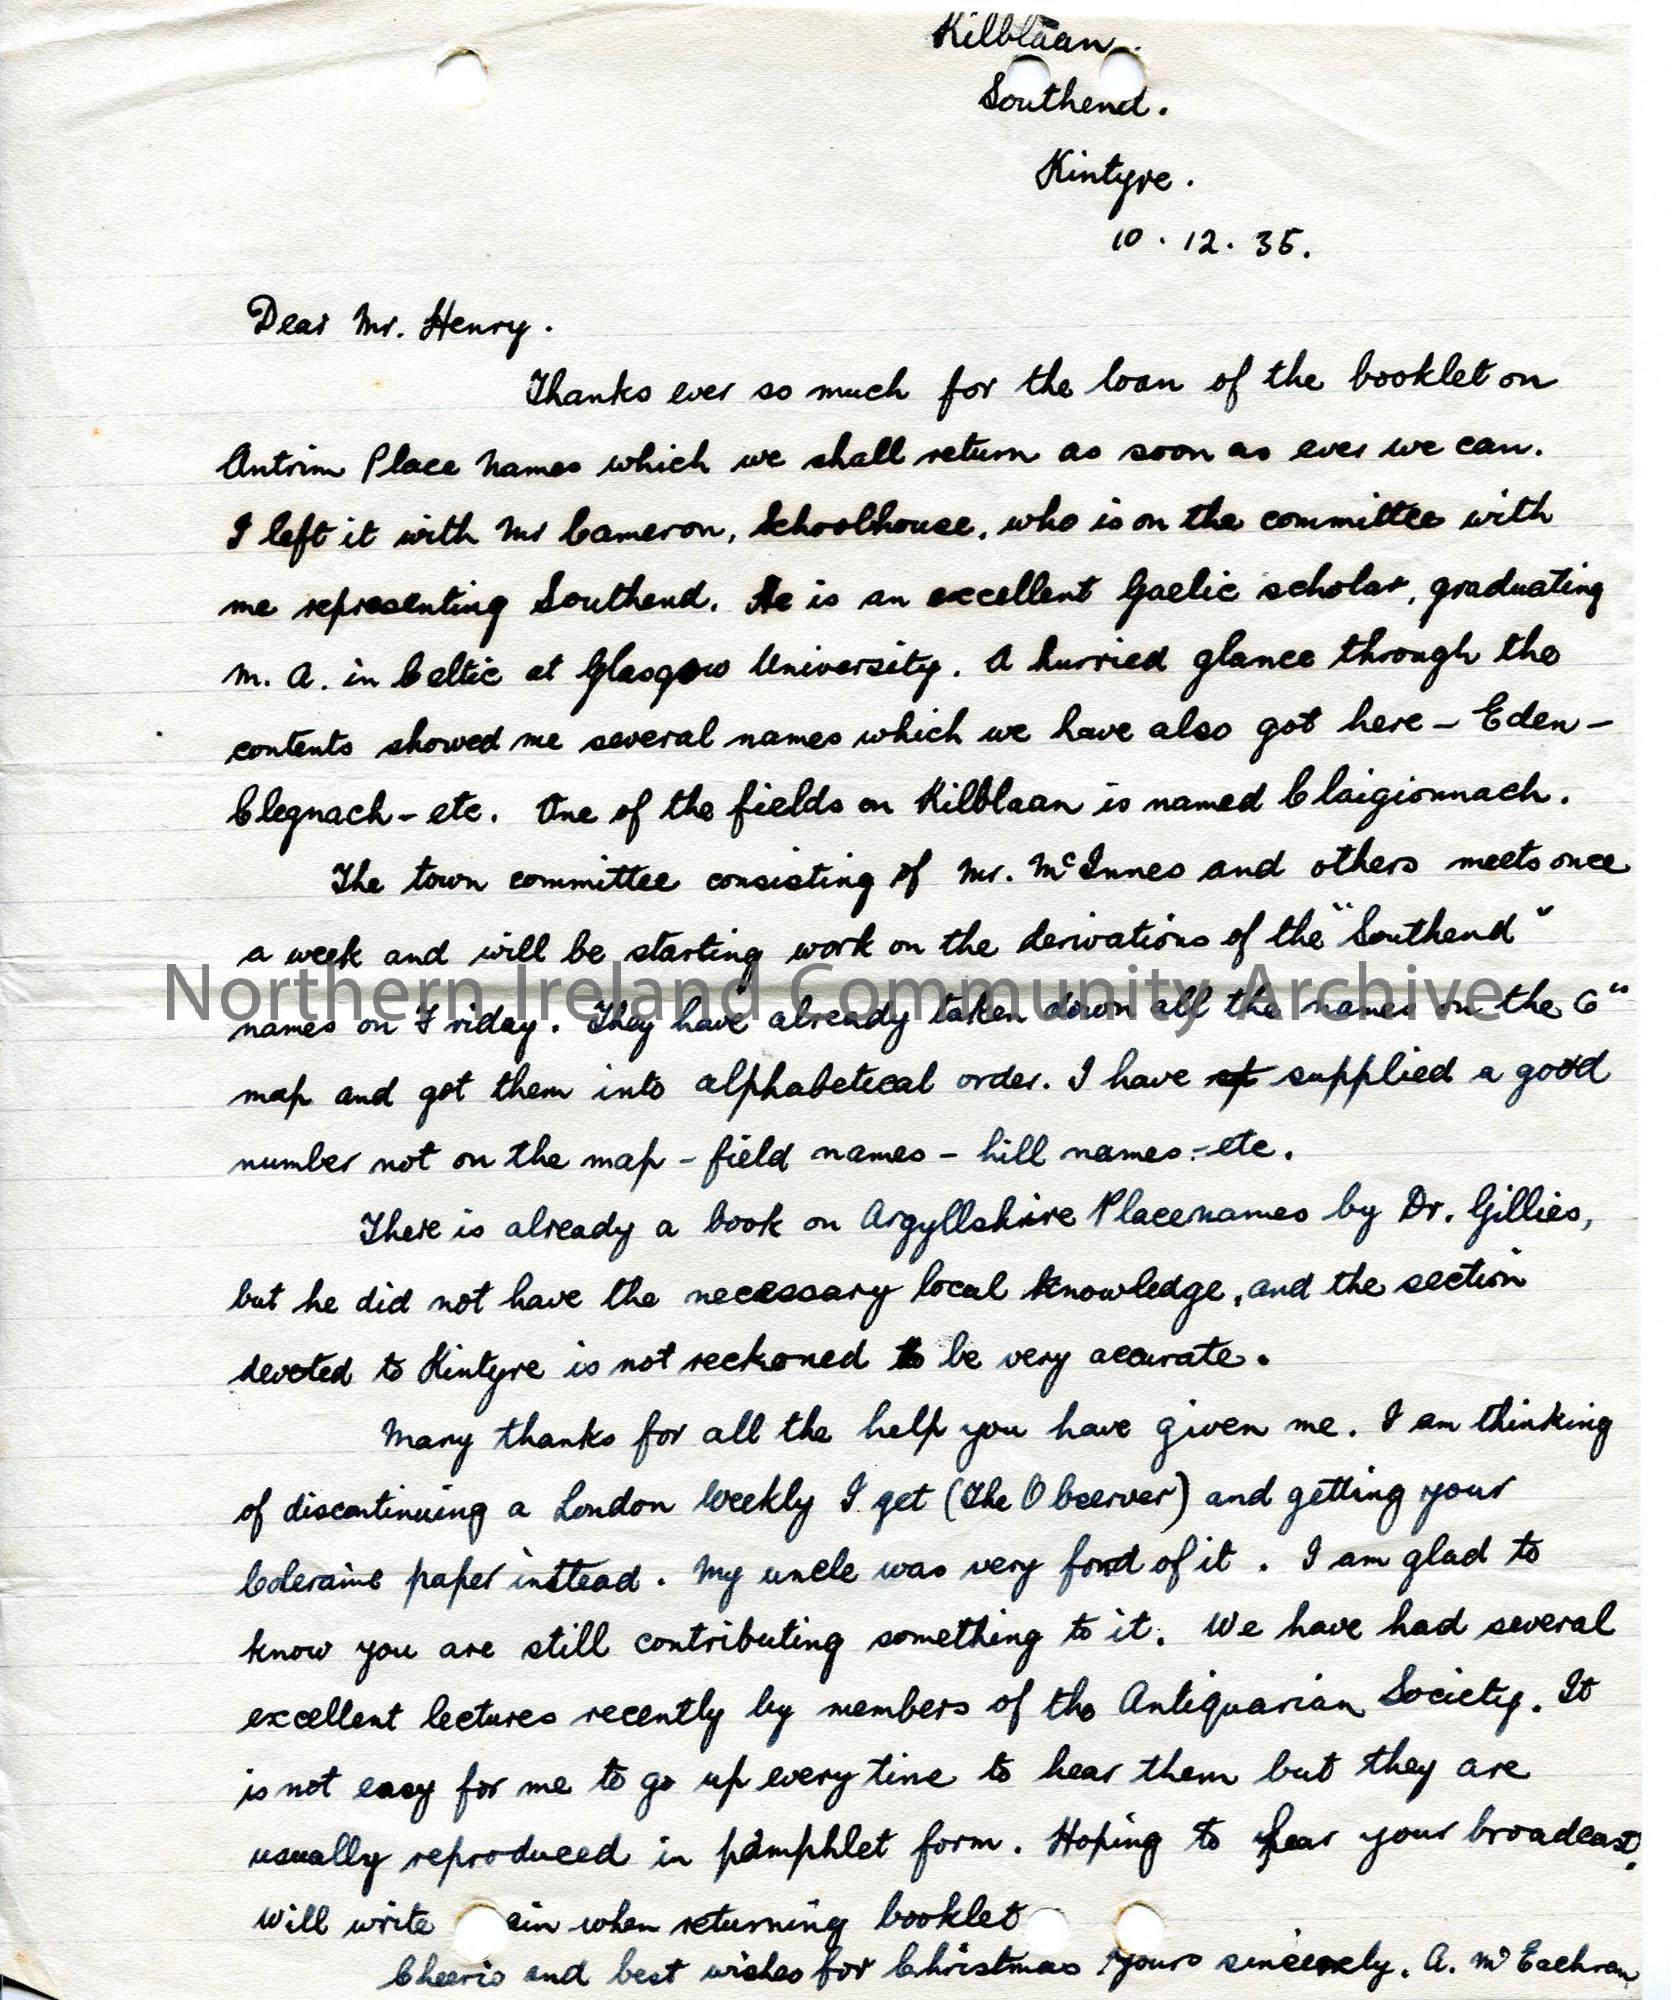 Kilblaan.
Southend.
Kintyre.
10 . 12 . 35.
Dear Mr. Henry.
Thanks ever so much for the loan of the booklet on
Antrim Place Names which we shall return as soon as ever we can.
I left it with Mr Cameron, Schoolhouse, who is on the committee with
me representing Southend. He is an excellent Gaelic scholar, graduating
M. A. in Celtic at Glasgow University. A hurried glance through the
contents showed me several names which we have also got here – Eden –
Clegnach – etc. One of the fields on Kilblaan is named Claigionnach.
The town committee consisting of Mr. McInnes and others meets once
a week and will be starting work on the derivations of the "Southend"
Northern Ireland Community Archive
names on Friday. They have already taken down all the names on the 6"
map and got them into alphabetical order. I have supplied a good
number not on the map – field names – hill names – etc.
There is already a book on Argyllshire Placenames by Dr. Gillies,
but he did not have the necessary local knowledge, and the section
devoted to Kintyre is not reckoned to be very accurate.
Many thanks for all the help you have given me. I am thinking
of discontinuing a London Weekly I get (The Observer) and getting your
Coleraine paper instead. My uncle was very fond of it. I am glad to
know you are still contributing something to it. We have had several
excellent lectures recently by members of the Antiquarian Society. It
is not easy for me to go up every time to hear them but they are
usually reproduced in pamphlet form. Hoping to hear your broadcast.
Will write ain when returning booklet
Cheerio and best wishes for Christmas Yours sincerely. A. McEachran